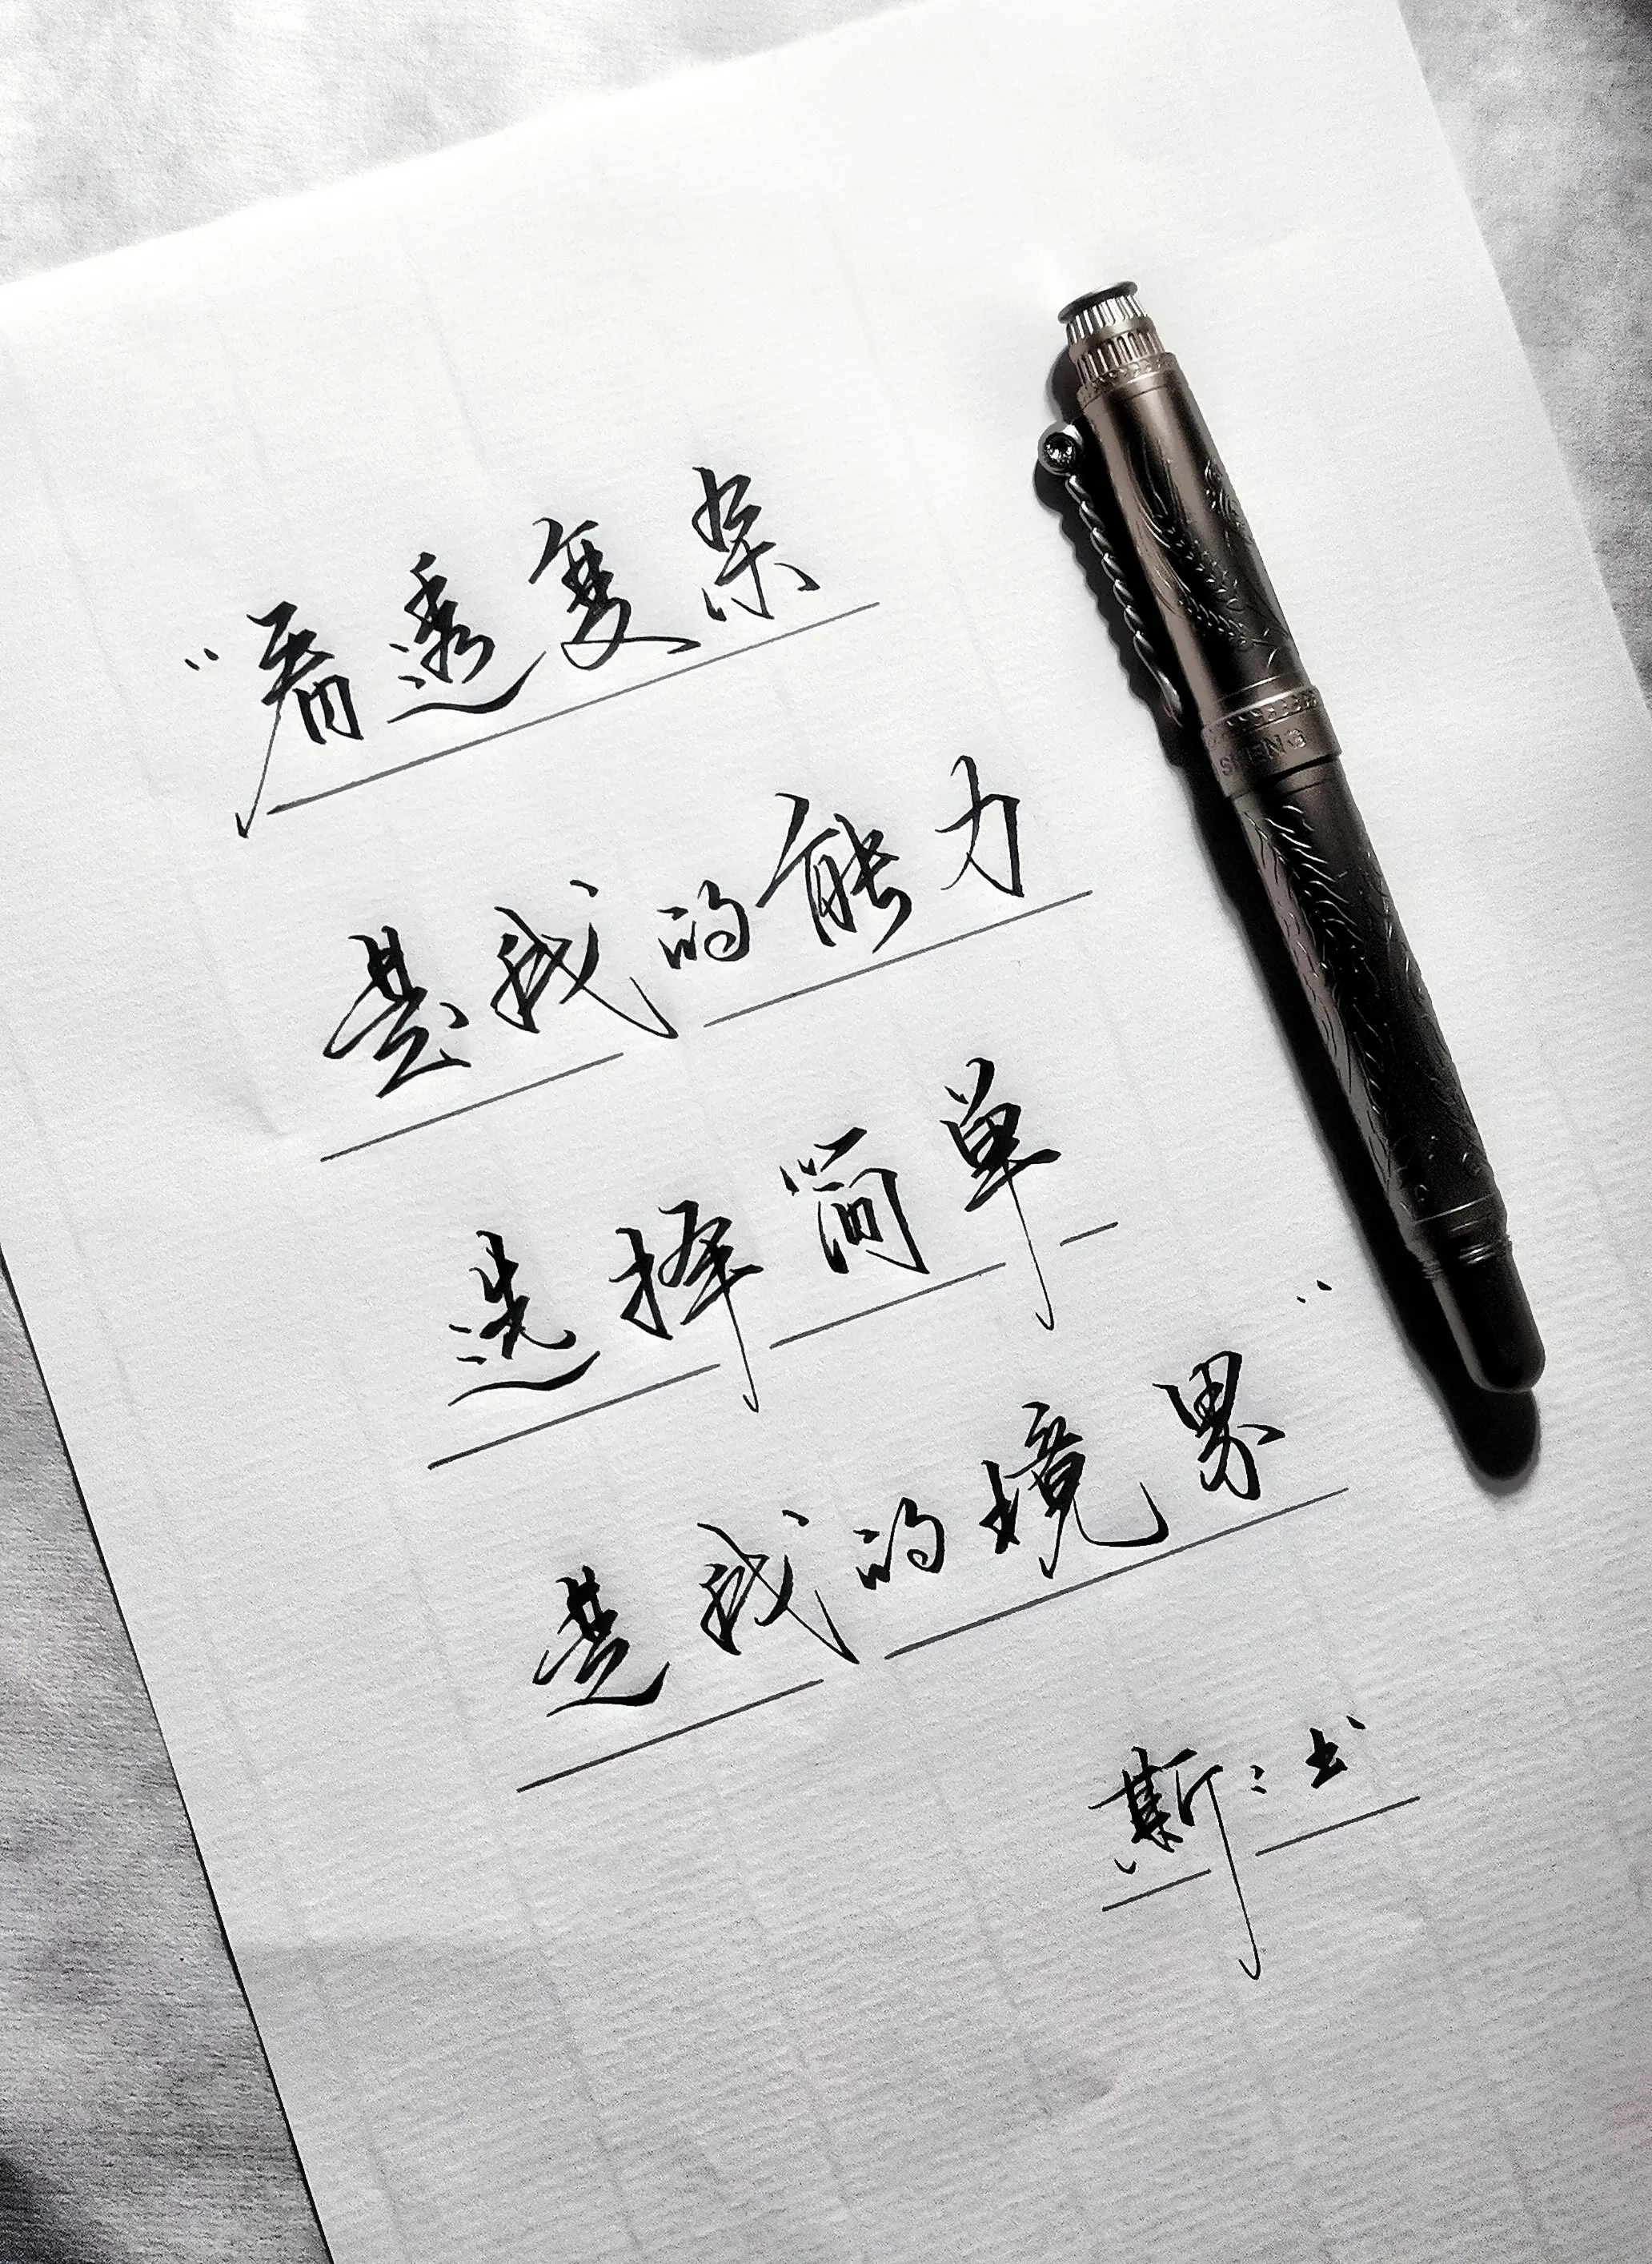 "看透复杂
是我的能力
选择简单
是我的境界"
斯:书
SHENG